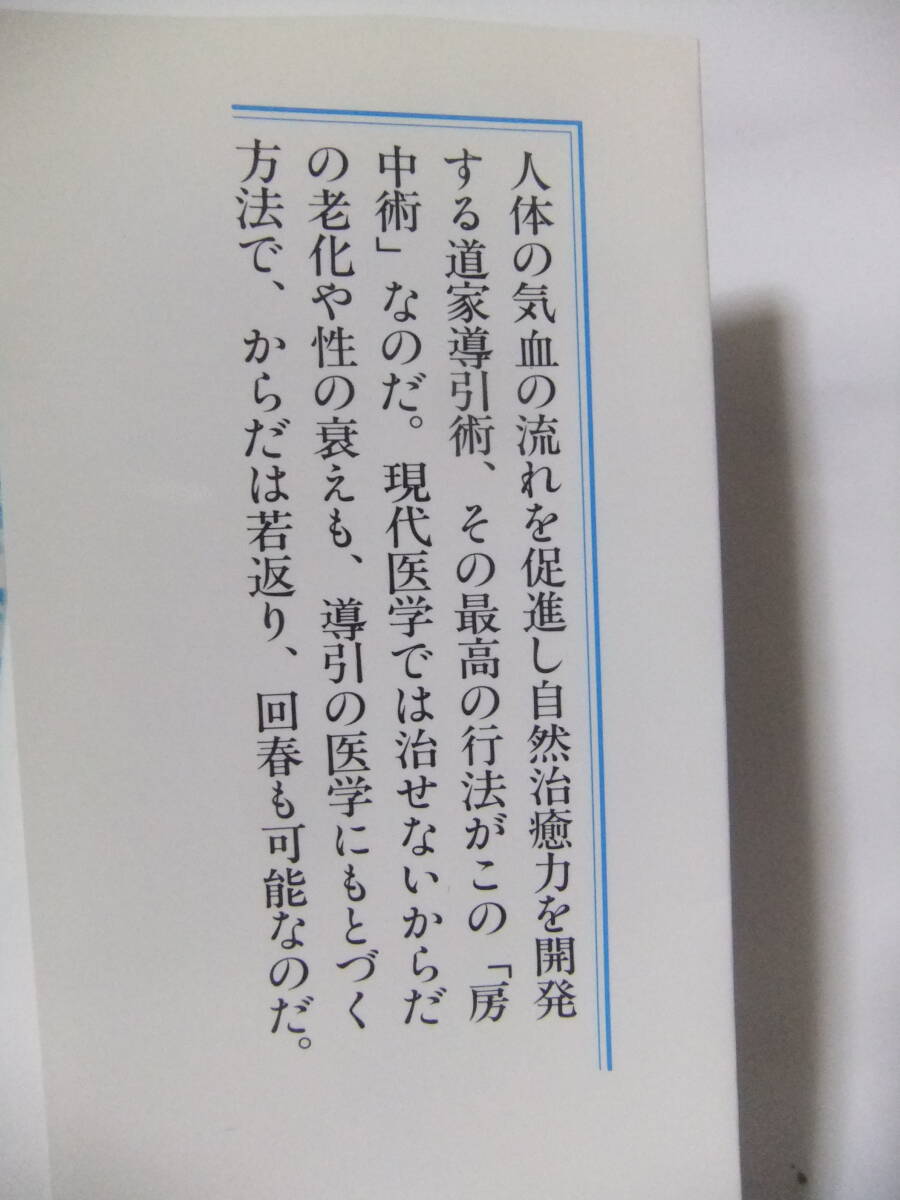 人体の気血の流れを促進し自然治癒力を開発
する道家導引術、その最高の行法がこの「房
中術」なのだ。現代医学では治せないからだ
の老化や性の衰えも、導引の医学にもとづく
方法で、からだは若返り、回春も可能なのだ。